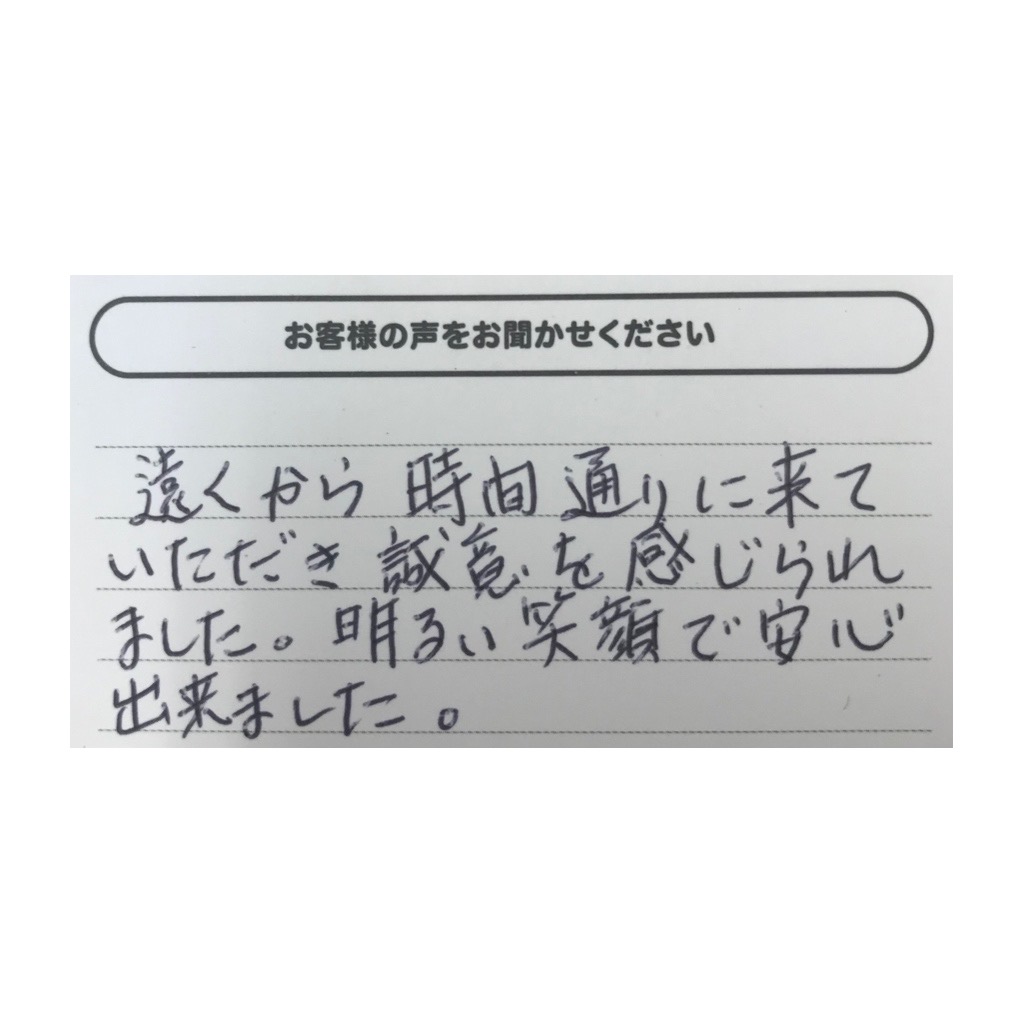 お客様の声をお聞かせください
遠くから時間通りに来て
いただき誠意を感じられ
ました。明るい笑顔で安心
出来ました。